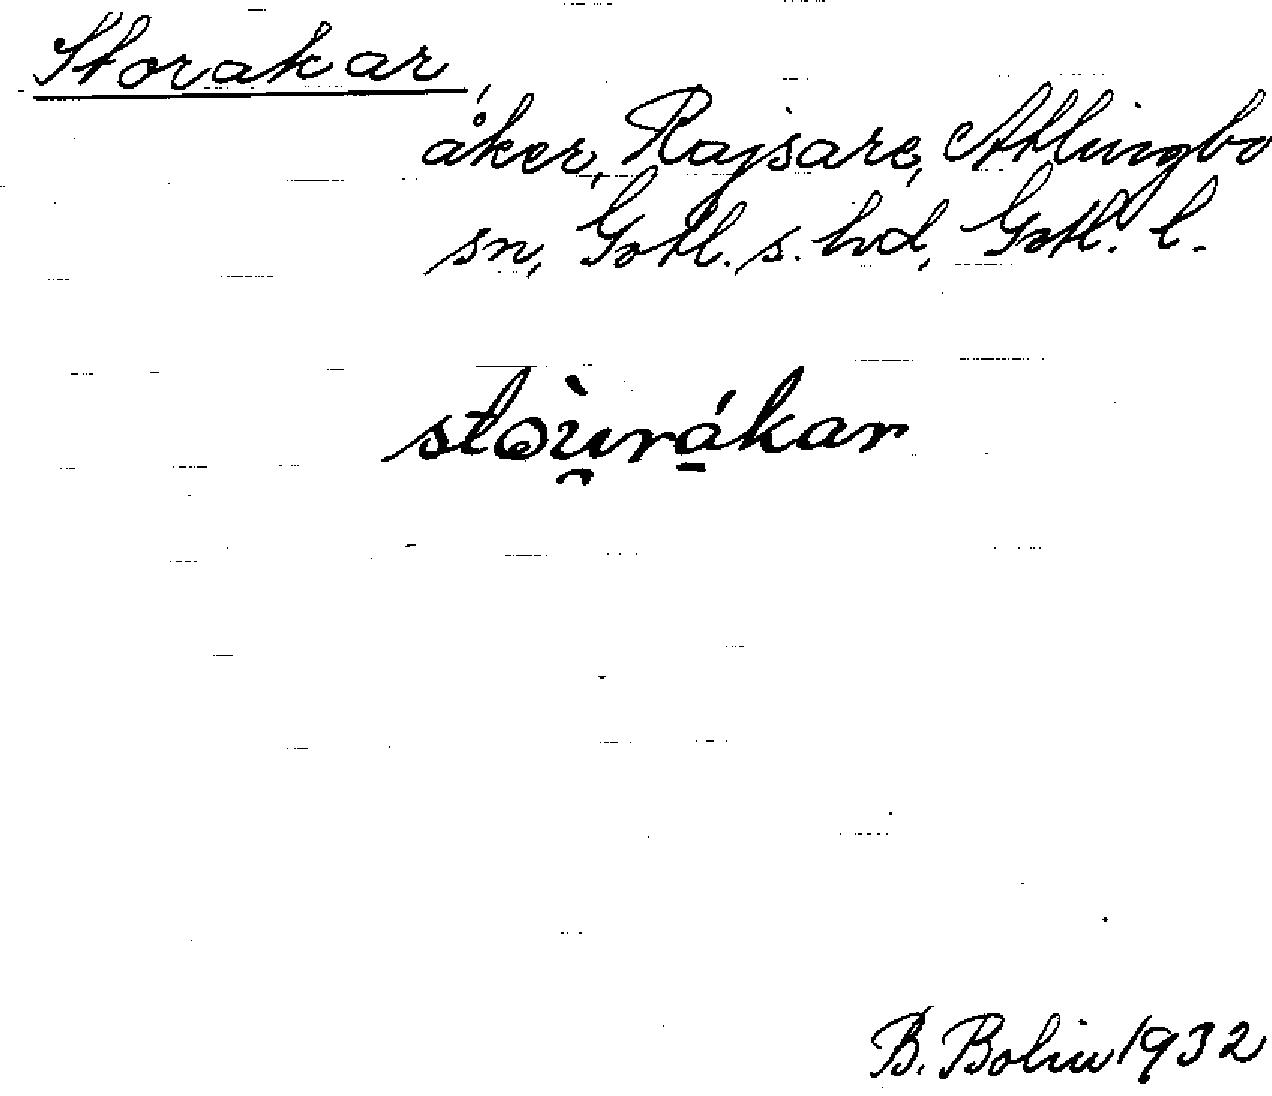 Storakar,
åker, Rajsare, Atlingbo
sn, Gotl. s. hd, Gotl. l.
stòu̯rá̱kar
B. Bolin 1932